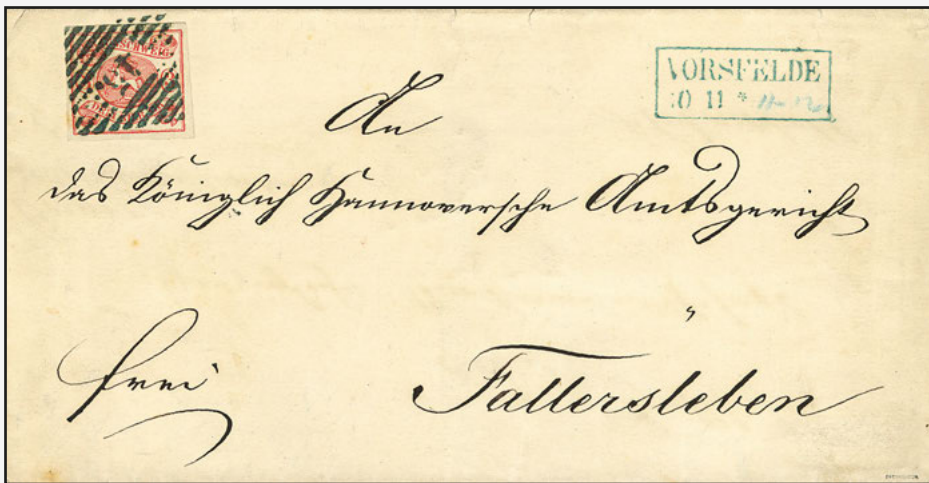 VORSFELDE
11 *
An
das Königlich Hannoversche Amtsgericht
"
frei
Fallersleben